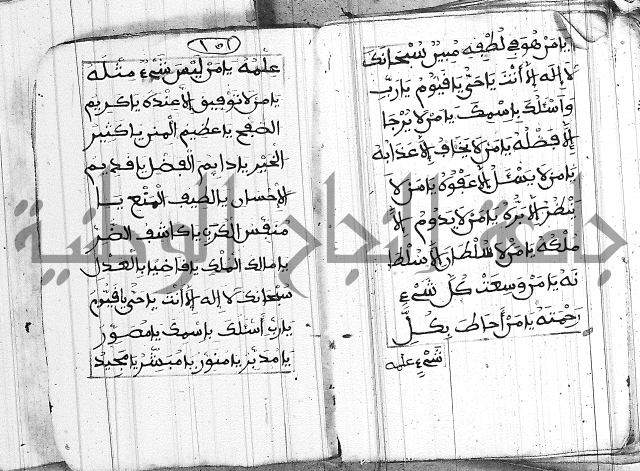 يا من هو في لطفه مبين سبحانك
لا إله إلا أنت يا حي يا قيوم يا رب
وأسئلك بإسمك يا من لا يرجا
إلا فضله يا من لا يخاف إلا عذابه
يا من لا يسئل إلا عفوه يا من لا
ينظر إلا بره يا من لا يدوم إلا
ملكه يا من لا سلطان إلا سلطا
نه يا من وسعت كل شيء
رحمته يا من أحاط بكل
شيء علمه
١٥١
علمه يا من ليس شيء مثله
يا من لا توفيق إلا عنده يا كريم
الصفح يا عظيم المن يا كثير
الخير يا دايم الفضل يا قديم
الإحسان يا لطيف الصنع يا
منفس الكرب يا كاشف الضر
يا مالك الملك يا قاضيا بالعدل
سبحانك لا إله إلا أنت يا حي يا قيوم
يا رب أسئلك بإسمك يا مصور
يا مدبر يا منور يا مبشر يا مجيد
جامعة النجاح الوطنية